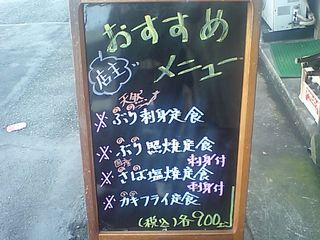 おすすめ
店主
メニュー
天然
※ぶり刺身定食
※ぶり照焼定食
国産 刺身付
※さば塩焼定食
刺身付
※カキフライ定食
(税込)各900